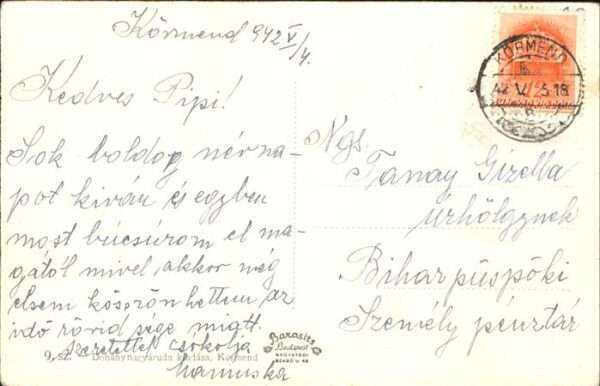 Körmend 942 V/4.
Kedves Pipi!
Sok boldog névna-
pot kiván és egyben
most búcsúzom el ma-
gától mivel akkor még
elsem köszönhettem az
idő rövidsége miatt.
szeretettel csokolja
Mamuska
9. sz. Dohánynagyáruda kiadása, Körmend
Barasits
Budapest
KÖRMEND
42 V. 5 18
Ngs.
Tanay Gizella
úrhölgynek
Biharpüspöki
Személy pénztár